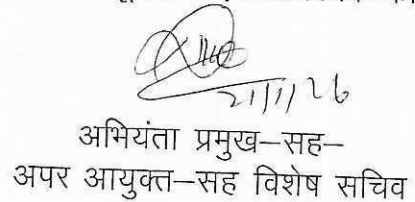 21/1/26
अभियंता प्रमुख–सह–
अपर आयुक्त–सह विशेष सचिव